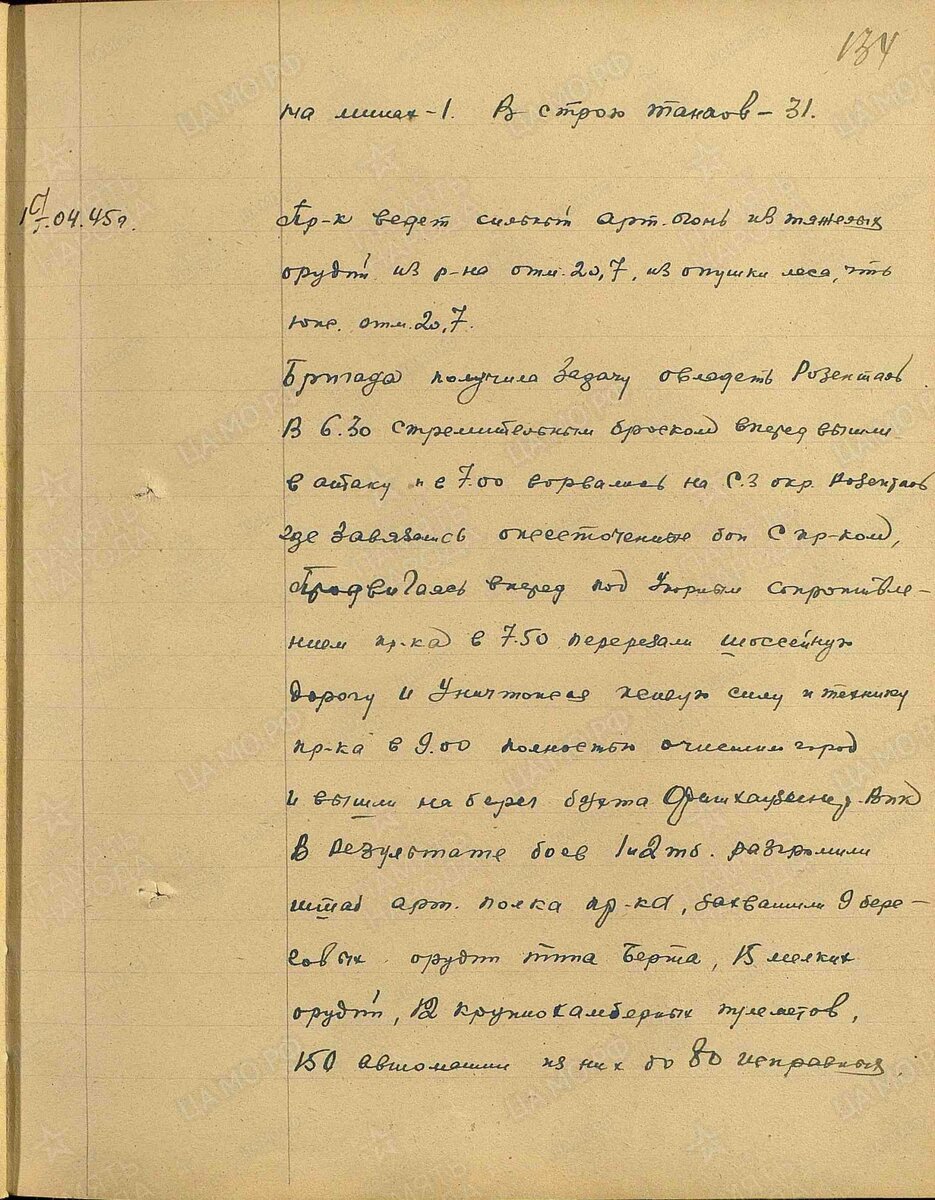 134
на минах-1. В строю танков - 31.
04.45г.
Пр-к ведет сильный арт. огонь из тяжелых
орудий из р-на отм. 20,7, из опушки леса, что
южн. отм. 20,7.
Бригада получила задачу овладеть Розенталь.
В 6.30 стремительным броском вперед вышли
в атаку и в 7.00 ворвались на С.З окр. Розенталь
где завязались ожесточенные бои с пр-ком,
Продвигаясь вперед под упорным сопротивле-
нием пр-ка в 7.50 перерезали шоссейную
дорогу и уничтожая живую силу и технику
пр-ка в 9.00 полностью очистили город
и вышли на берег бухта Фришхаузенер-Вик
В результате боев 1и2тб. разгромили
штаб арт. полка пр-ка, захватили 9 бере-
говых орудий типа Берта, 15 мелких
орудий, 12 крупнокалиберных пулеметов,
150 автомашин из них до 80 исправных.